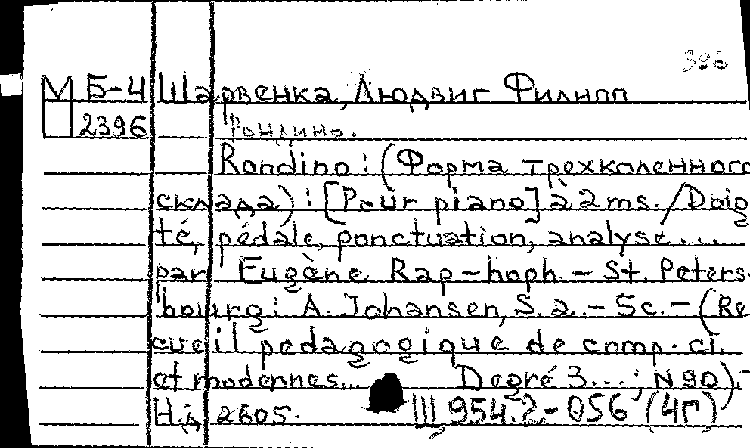 396
М Б-4 Шарвенка, Людвиг Филипп
2396 Рондино.
Rondino: (Форма трехколенного
склада): [Pour piano] à 2 ms. / Doig
té, pédale, ponctuation, analyse...
par Eugène Rap-hoph. - St. Peters-
bourg: A. Johansen, S. a. - 5c. - (Re
cueil pedagogique de comp. cl.
et modernes... Degré 3...; N 90).-
Н.д. 2605. III 954.2-056 (4г)